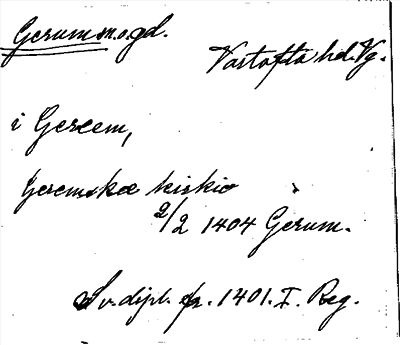 Gerum sn. o. gd.
Vartofta hd. Vg.
i Gereem,
Geremskæ kirkio
2/2 1404 Gerum.
Sv. dipl. fr. 1401. I. Reg.